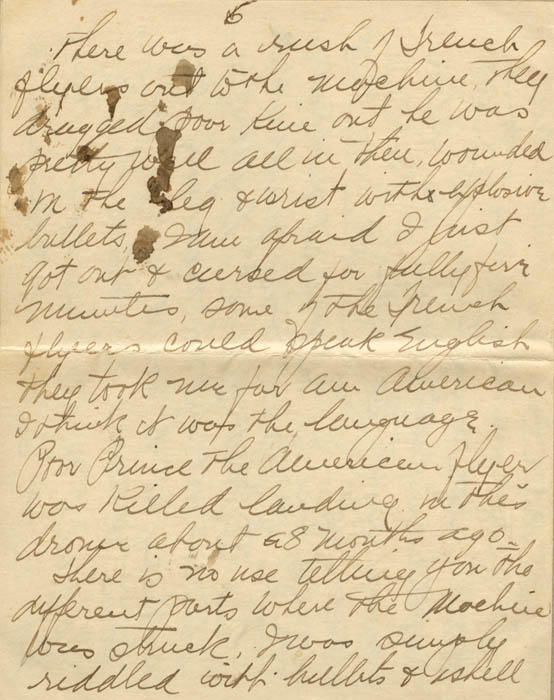 6
There was a rush of French
flyers out to the machine, they
dragged poor Kine out he was
pretty well all in then, wounded
in the leg & wrist with explosive
bullets, I am afraid I just
got out & cursed for fully five
minutes, some of the French
flyers could speak English
they took me for an American
I think it was the language.
Poor Prince the American flyer
was killed landing in this
drome about 8 months ago.
There is no use telling you the
different parts where the machine
was struck, I was simply
riddled with bullets & shell